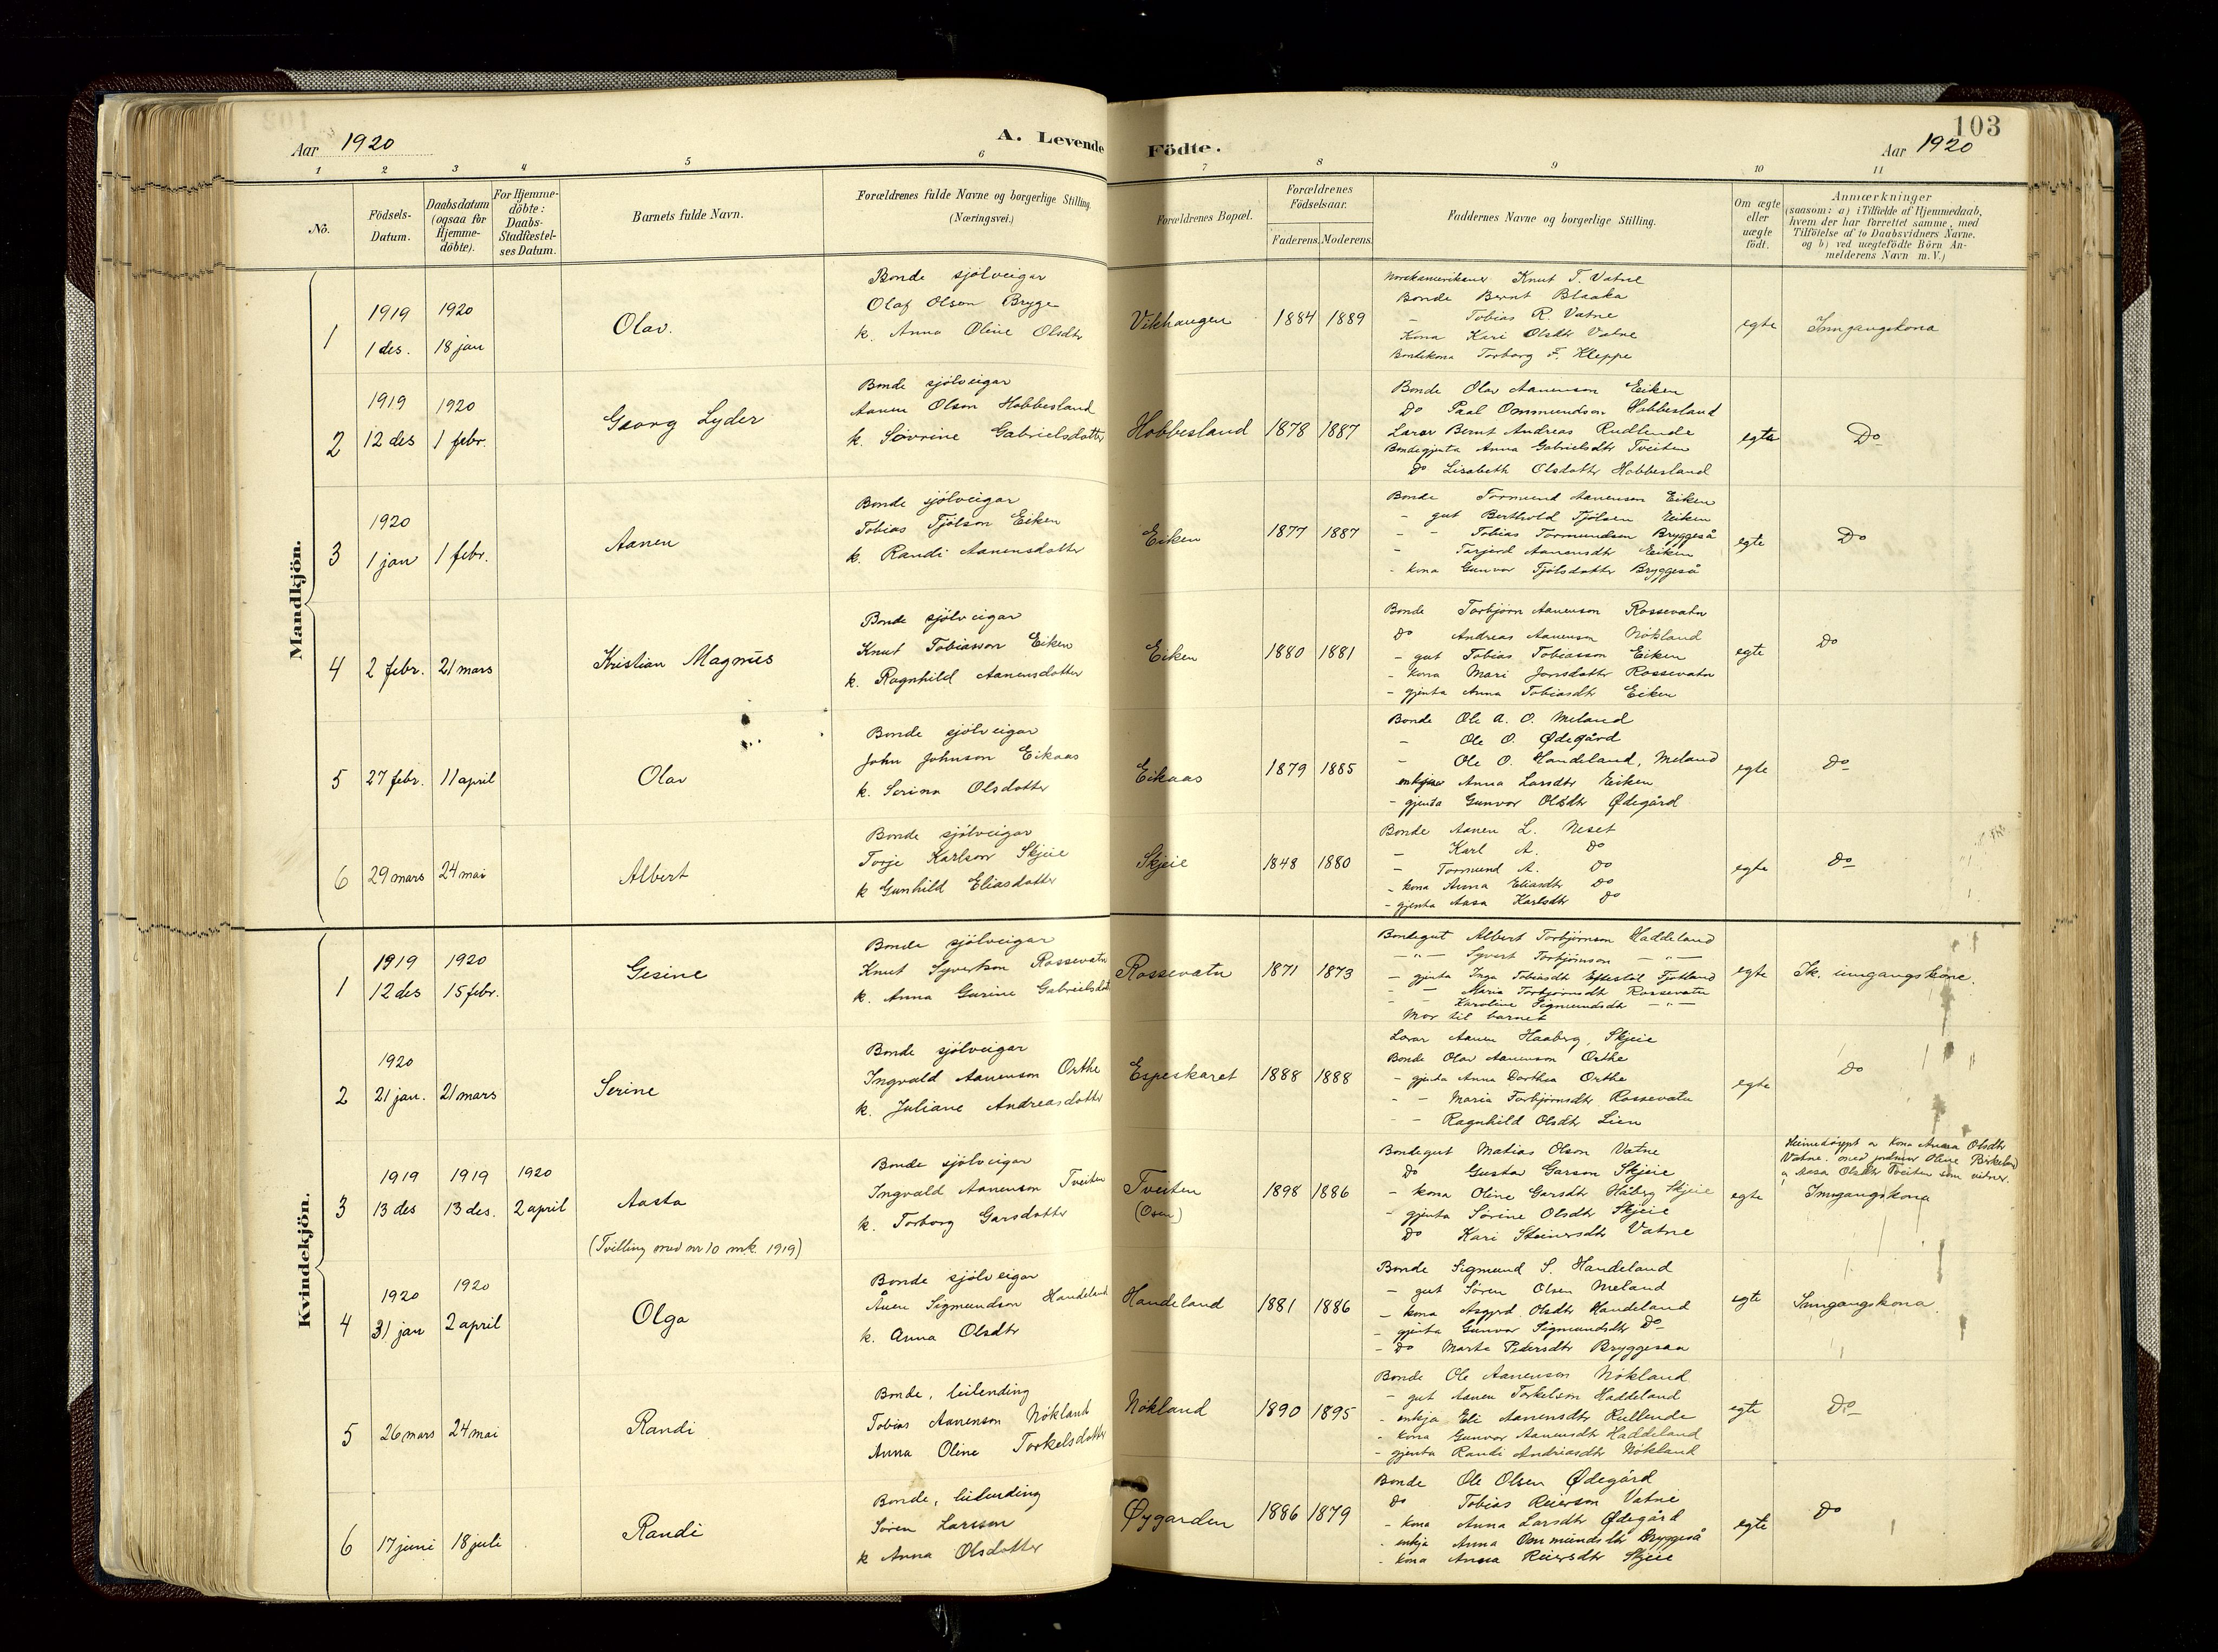 Aar 1920
A. Levende Födte.
103
Aar 1920
1 2 3 4 5 6 7 8 9 10 11
No.
Födsels-Datum.
Daabsdatum (ogsaa for Hjemme-döbte).
For Hjemme-döbte: Daabs-Stadfæstel-ses Datum.
Barnets fulde Navn.
Forældrenes fulde Navne og borgerlige Stilling. (Næringsvei.)
Forældrenes Bopæl.
Forældrenes Födselsaar.
Faderens. Moderens.
Faddernes Navne og borgerlige Stilling.
Om ægte eller uægte födt.
Anmærkninger
(saasom: a) i Tilfælde af Hjemmedaab,
hvem der har forrettet samme, med
Tilföielse af to Daabsvidners Navne.
og b) ved uægtefödte Börn An-
melderens Navn m.V.)
Mandkjön.
1
1919 1 des.
1920 18 jan
Olav.
Bonde sjölveigar
Olaf Olson Brygge
k. Anna Oline Olsdtr
Vikhaugen
1884 1889
Norskamerikaner Knut T. Vatne
Bonde Bernt Blaaka
- Tobias R. Vatne
Kona Kari Olsdtr Vatne
Bondekona Torborg F. Kleppe
egte
Inngangskona
2
1919 12 des
1920 1 febr.
Georg Lyder
Bonde sjölveigar
Aanen Olson Hobbesland
k. Sövrine Gabrielsdotter
Hobbesland
1878 1887
Bonde Olav Aanenson Eiken
Do Paal Ommundson Hobbesland
Lærar Bernt Andreas Rudlende
Bondegjenta Anna Gabrielsdtr Tveiten
Do Lisabeth Olsdotter Hobbesland
egte
Do
3
1920 1 jan
1 febr.
Aanen
Bonde sjölveigar
Tobias Tjölson Eiken
k. Randi Aanensdotter
Eiken
1877 1887
Bonde Tormund Aanenson Eiken
- gut Berthold Tjölsen Eiken
- - Tobias Tormundsen Bryggeså
- Tarjerd Aanensdtr Eiken
- kona Gunvor Tjölsdotter Bryggeså
egte
Do
4
2 febr.
21 mars
Kristian Magnus
Bonde sjölveigar
Knut Tobiasson Eiken
k. Ragnhild Aanensdotter
Eiken
1880 1881
Bonde Torbjörn Aanenson Rossevatn
Do Andreas Aanenson Nökland
- gut Tobias Tobiasson Eiken
- kona Mari Jonsdotter Rossevatn
- gjenta Anna Tobiasdtr Eiken
egte
Do
5
27 febr.
11 april
Olav
Bonde sjölveigar
John Johnson Eikaas
k. Serina Olsdotter
Eikaas
1879 1885
Bonde Ole A. O. Meland
- Ole O. Ødegård
- Ole O. Handeland, Meland
enkja Anna Larsdtr Eiken
- gjenta Gunvor Olsdtr Ødegård
egte
Do
6
29 mars
24 mai
Albert
Bonde sjölveigar
Torje Karlson Skjeie
k Gunhild Eliasdotter
Skjeie
1848 1880
Bonde Aanen L. Neset
- Karl A. Do
- Tormund A. Do
- kona Anna Eliasdtr Do
- gjenta Aasa Karlsdtr Do
egte
Do
Kvindekjön.
1
1919 12 des
1920 15 febr.
Gesine
Bonde sjölveigar
Knut Syvertson Rossevatn
k. Anna Gurine Gabrielsdott
Rossevatn
1871 1873
Bondegut Albert Torbjörnson Haddeland
- " - Syvert Torbjörnson - " -
- gjenta Inga Tobiasdt Eftestöl Fjotland
- - Maria Torbjörnsdt Rossevatn
- - Karoline Sigmundsdtr - " -
Mor til barnet
egte
Ik. inngangskone.
2
1920 21 jan.
21 mars
Serine
Bonde sjölveigar
Ingvald Aanenson Orthe
k. Juliane Andreasdotter
Espeskaret
1888 1888
Lærar Aanen Haaberg, Skjeie
Bonde Olav Aanenson Orthe
- gjenta Anna Dorthea Orthe
- - Maria Torbjørnsdtr Rossevatn
- - Ragnhild Olsdtr Lien
egte
Do
3
1919 13 des
1919 13 des.
1920 2 april
Aasta
(Tvilling med nr 10 mk. 1919)
Bonde sjölveigar
Ingvald Aanenson Tveiten
k. Torborg Garsdotter
Tveiten
(Osen)
1898 1886
Bondegut Matias Olson Vatne
Do Gustav Garson Skjeie
- kona Oline Garsdtr Håberg Skjeie
- gjenta Sörine Olsdtr Skjeie
Do Kari Steinersdtr Vatne
egte
Heimedöypt av kona Anna Olsdtr
Vatne. med jordmor Oline Birkeland
Aasa Olsdtr Tveiten som vidner.
Inngangskona
4
1920 31 jan
1920 2 april
Olga
Bonde sjölveigar
Ånen Sigmundson Handeland
k. Anna Olsdtr
Handeland
1881 1886
Bonde Sigmund S. Handeland
- gut Sören Olsen Meland
- kona Asgjerd Olsdtr Handeland
- gjenta Gunvor Sigmundsdtr Do
- Do Marta Pedersdtr Bryggesaa
egte
Inngangskona.
5
26 mars
24 mai
Randi
Bonde, leilending
Tobias Aanenson Nökland
Anna Oline Torkelsdotter
Nökland
1890 1895
Bonde Ole Aanenson Nökland
- gut Aanen Torkelson Haddeland
- enkja Eli Aanensdtr Rullende
- kona Gunvor Aanensdtr Haddeland
- gjenta Randi Andreasdtr Nökland
egte
Do
6
17 juni
18 juli
Randi
Bonde, leilending
Sören Larsson
k Anna Olsdotter
Øygarden
1886 1879
Bonde Ole Olsen Ødegård
Do Tobias Reierson Vatne
- kona Anna Larsdtr Ødegård
- enkja Anna Ommundsdtr Bryggeså
- kona Anna Reiersdtr Skjeie
egte
Do